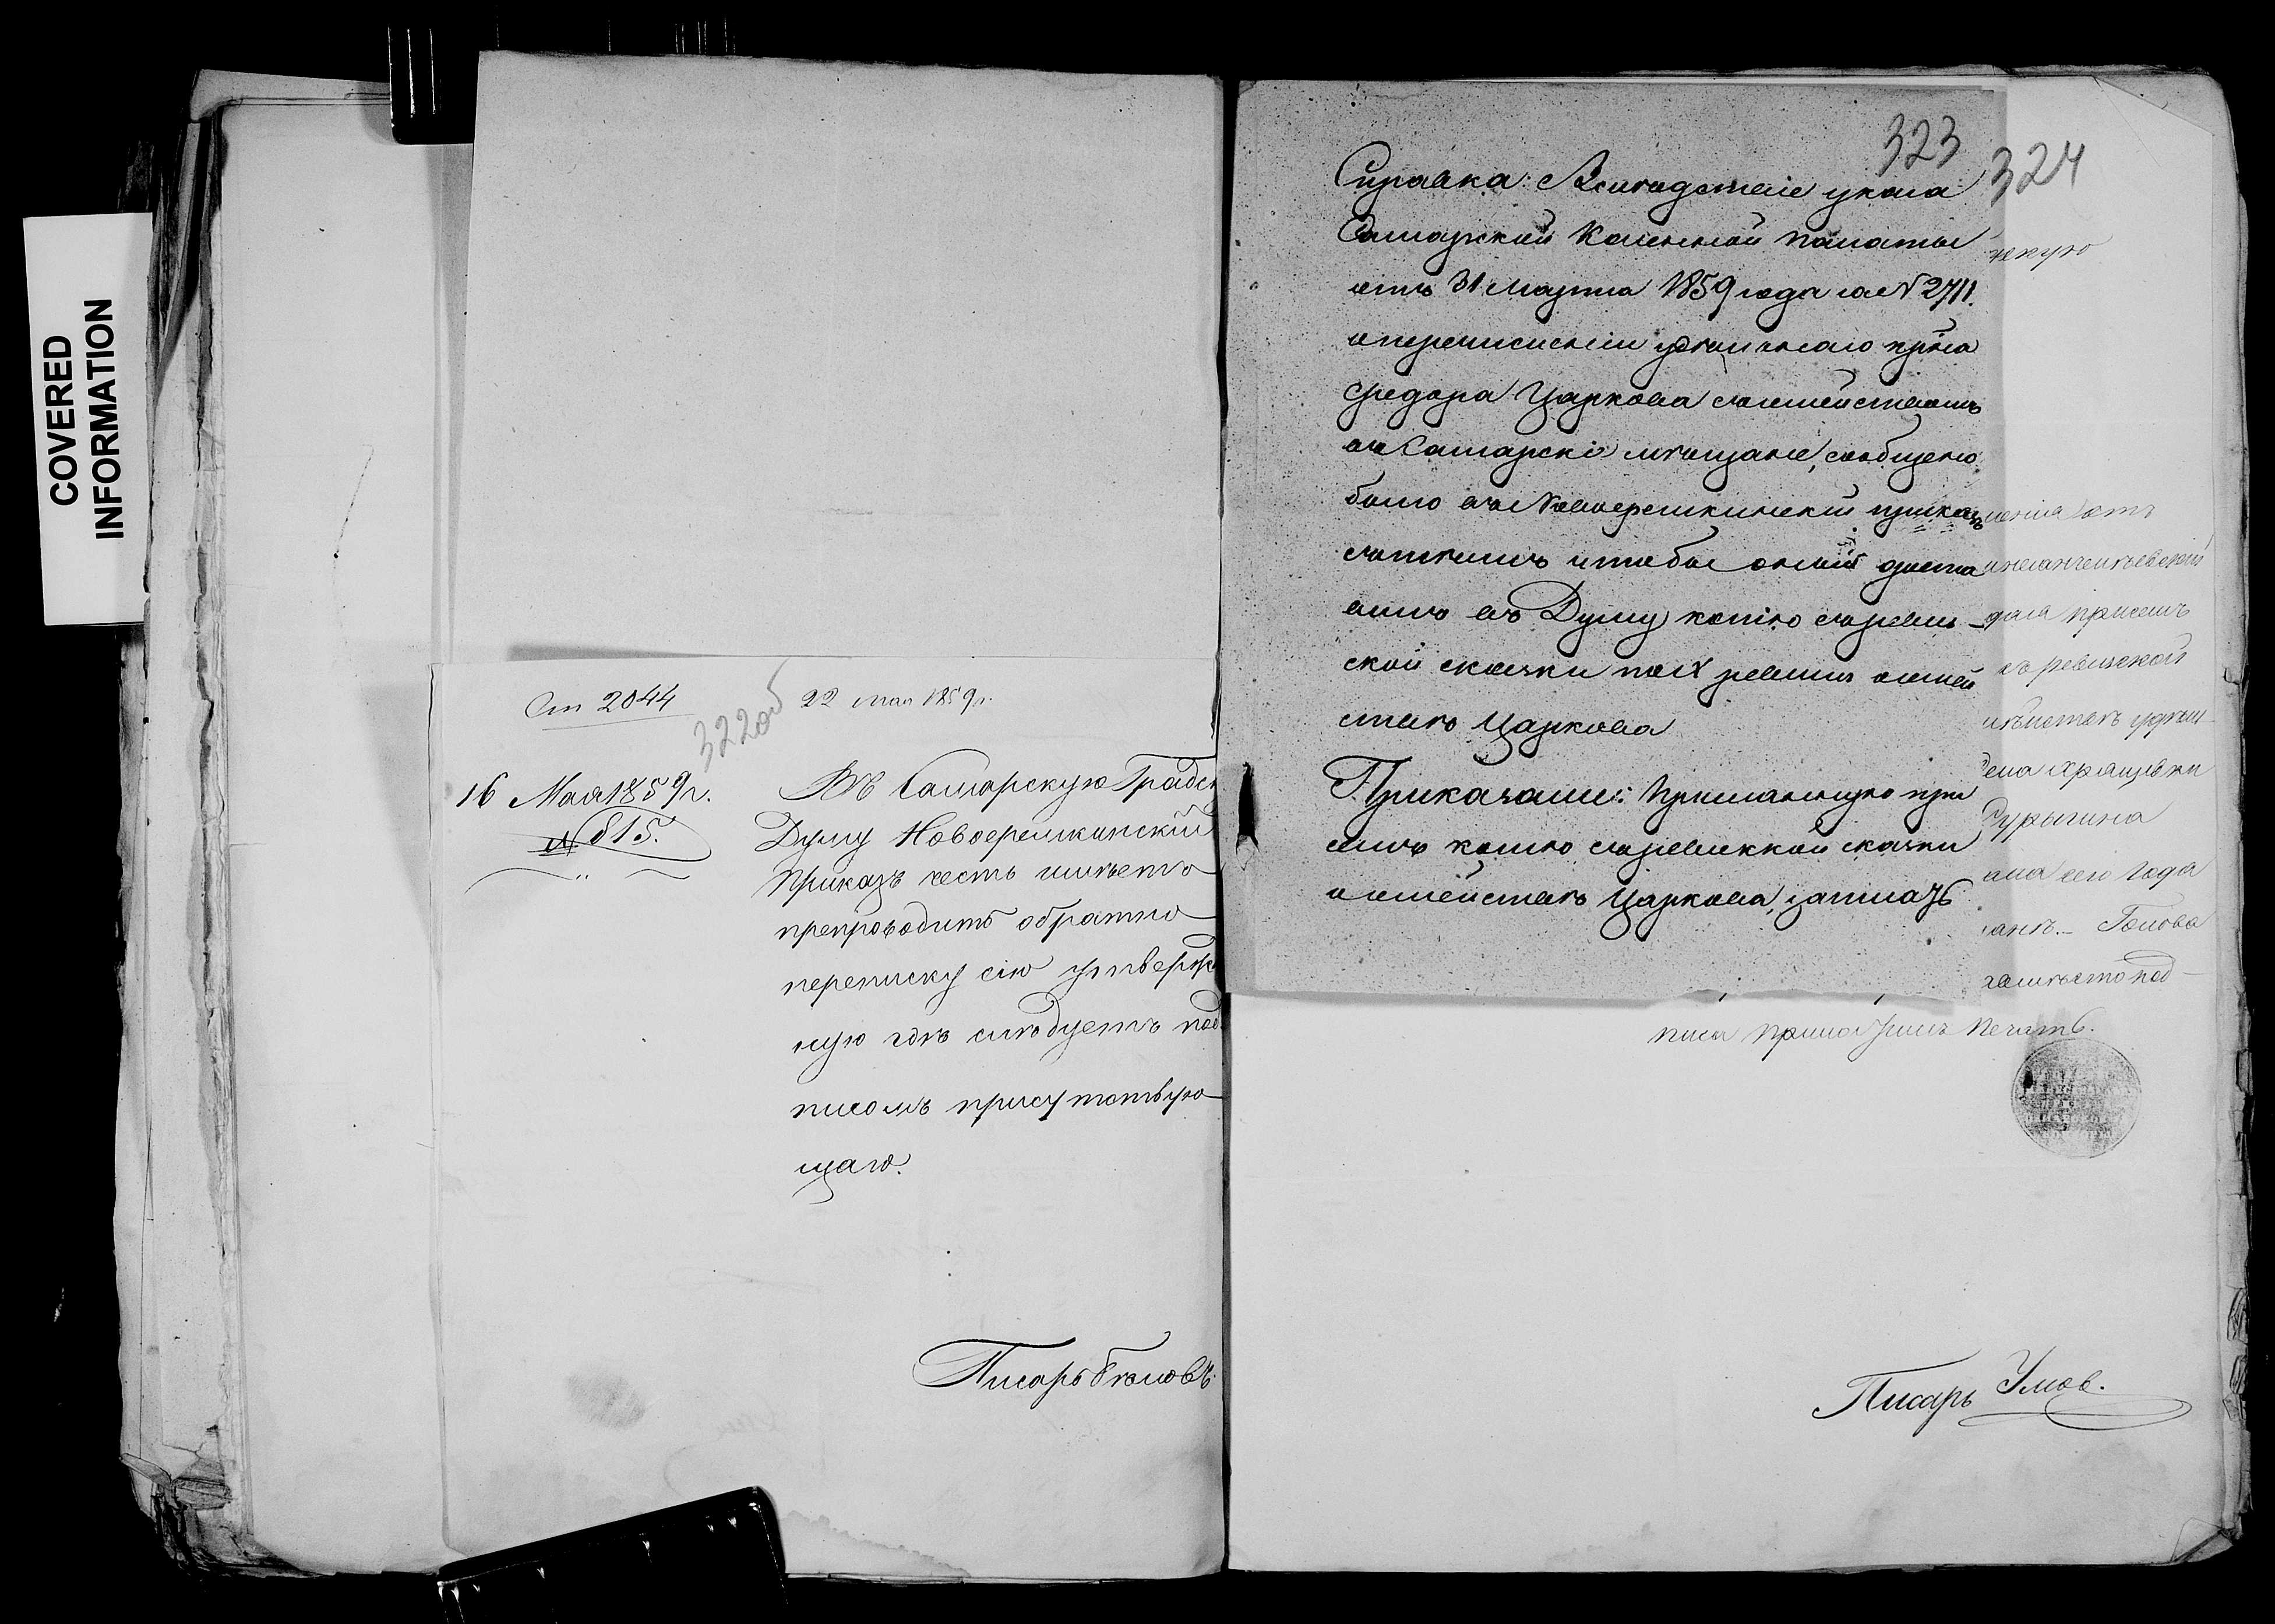 COVERED
INFORMATION
Ст 2044
322об
22 мая 1859 г.
16 Мая 1859 г.
№ 815.
Въ Самарскую Градск
Думу Новоеремкинскій
Приказъ честь имѣетъ
препроводить обратно
переписку сію утвержд
ную гдѣ слѣдуетъ под
писомъ присутствую
щаго.
Писарь Бѣловъ.
323
324
Справка: Вслѣдствіе указа
Самарской Казенной палаты
отъ 31 Марта 1859 года за № 2711.
о перечисленіи удѣльнаго крѣна
Федора Царкова съ семействомъ
въ Самарскіе мѣщане, сообщено
было въ Новоеремкинский приказъ
съ тѣмъ чтобы оный доста
вилъ въ Думу копію съ ревиз-
ской сказки по X ревизіи о семей
ствѣ Царкова
Приказали: Присланную при
семъ копію съ ревизской сказки
о семействѣ Царкова, записать
ческую
ленія отъ
дала при семъ
съ ревизской
сѣмействѣ удѣль
дена Хрящевки
Дурыгина
мая сего года
ланъ. - Голова
хавмѣсто под-
писи приложилъ печать.
Писарь Умов.